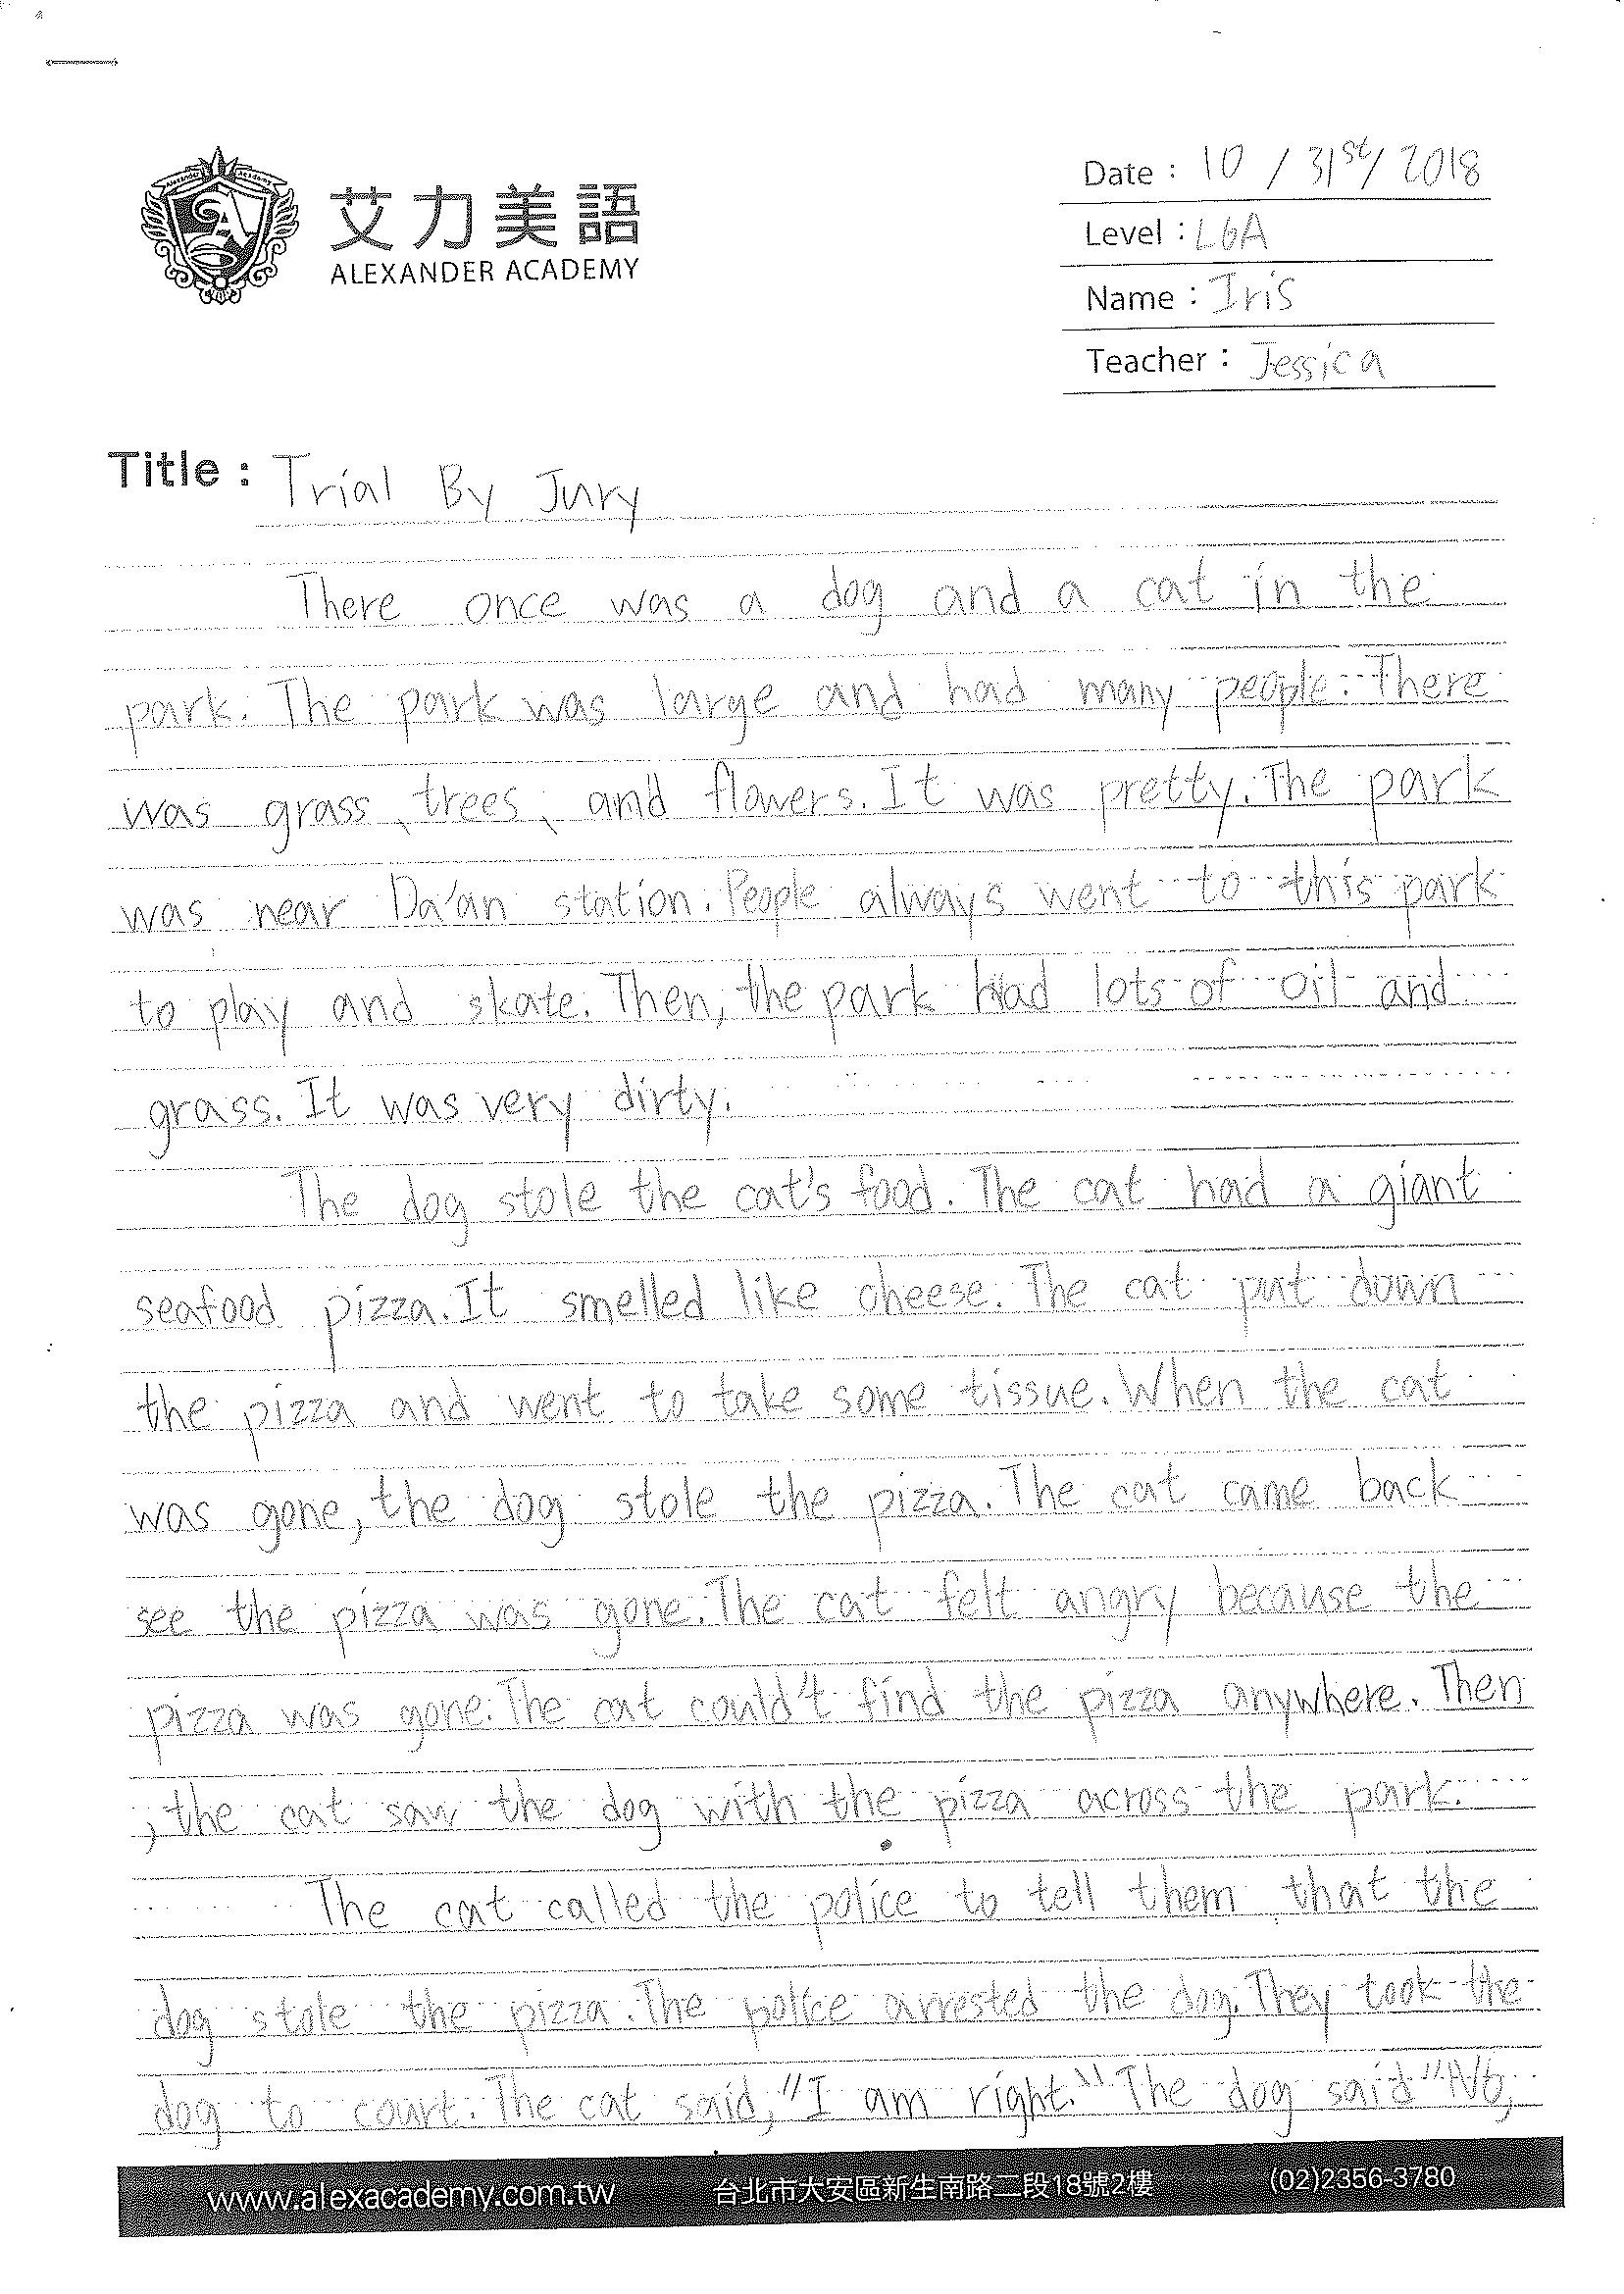 艾力美語
ALEXANDER ACADEMY
Date : 10 / 31st / 2018
Level : L6A
Name : Iris
Teacher : Jessica
Title : Trial By Jury
There once was a dog and a cat in the
park. The park was large and had many people. There
was grass、trees、and flowers. It was pretty. The park
was near Da'an station. People always went to this park
to play and skate. Then, the park had lots of oil and
grass. It was very dirty.
The dog stole the cat's food. The cat had a giant
seafood pizza. It smelled like cheese. The cat put down
the pizza and went to take some tissue. When the cat
was gone, the dog stole the pizza. The cat came back
see the pizza was gone. The cat felt angry because the
pizza was gone. The cat could't find the pizza anywhere. Then
, the cat saw the dog with the pizza across the park.
The cat called the police to tell them that the
dog stole the pizza. The police arrested the dog. They took the
dog to court. The cat said, "I am right." The dog said "No,
www.alexacademy.com.tw 台北市大安區新生南路二段18號2樓 (02)2356-3780